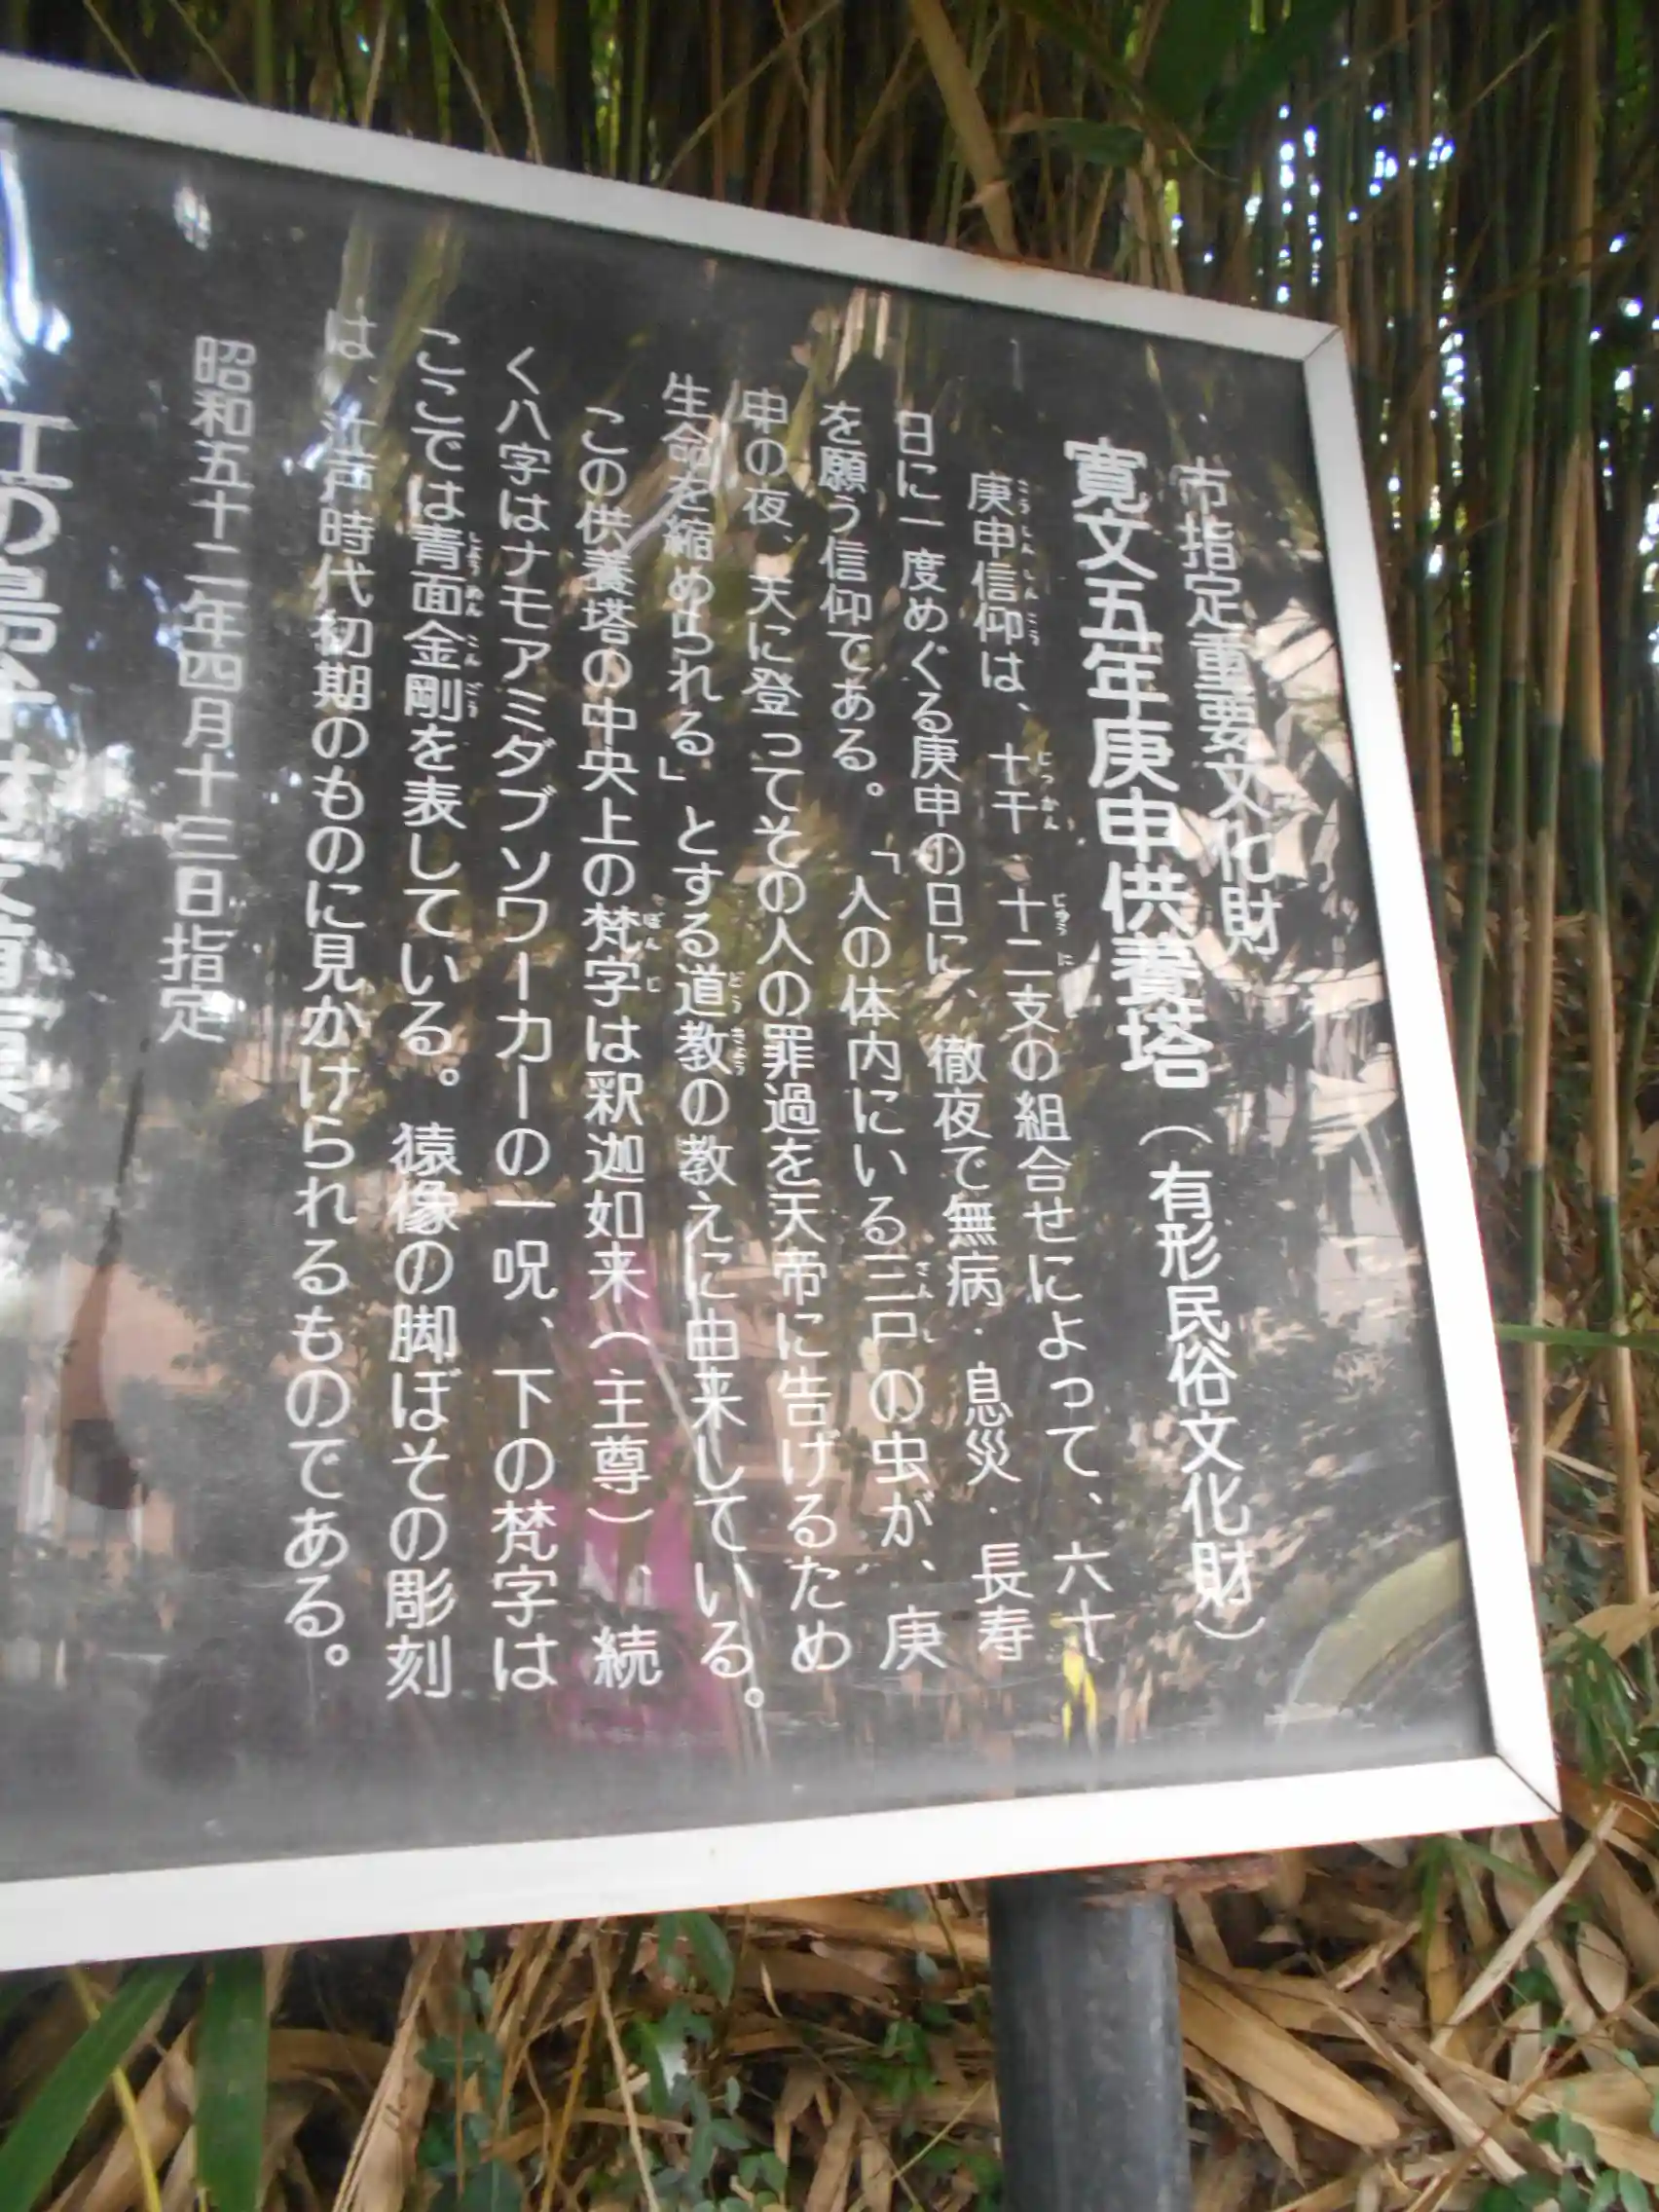 市指定重要文化財
寛文五年庚申供養塔（有形民俗文化財）
庚申信仰は、十干、十二支の組合せによって、六十
日に一度めぐる庚申の日に、徹夜で無病・息災・長寿
を願う信仰である。「人の体内にいる三尸の虫が、庚
申の夜、天に登ってその人の罪過を天帝に告げるため
生命を縮められる」とする道教の教えに由来している。
この供養塔の中央上の梵字は釈迦如来（主尊）、続
く八字はナモアミダブソワーカーの一呪、下の梵字は
ここでは青面金剛を表している。猿像の脚ぼその彫刻
は、江戸時代初期のものに見かけられるものである。
昭和五十二年四月十三日指定
江の島